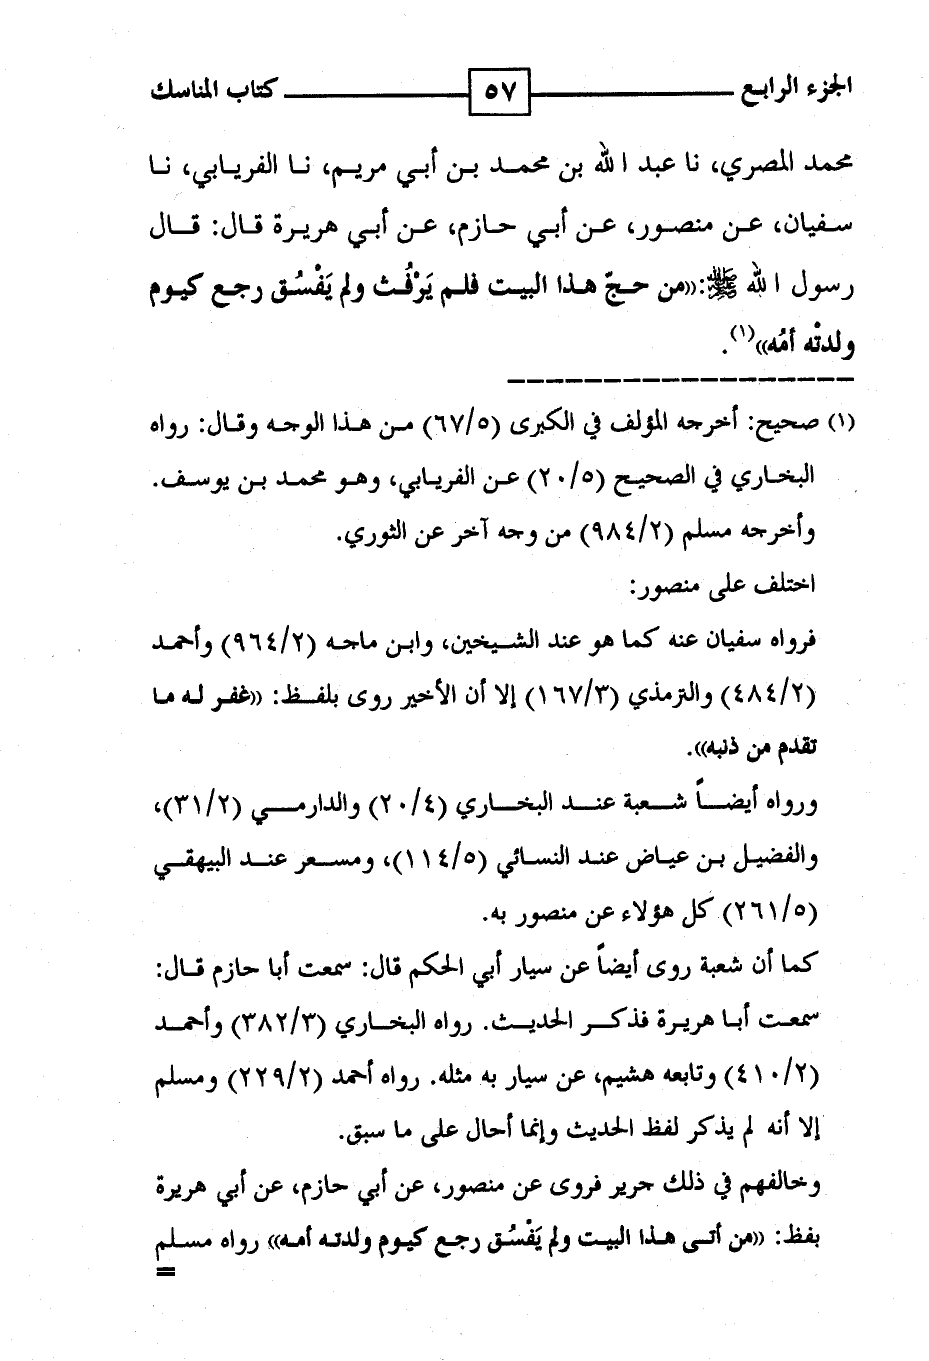 الجزء الرابع ٥٧ كتاب المناسك
محمد المصري، نا عبد الله بن محمد بن أبي مريم، نا الفريابي، نا
سفيان، عن منصور، عن أبي حازم، عن أبي هريرة قال: قال
رسول الله ﷺ: ((من حجّ هذا البيت فلم يَرْفُث ولم يَفْسُق رجع كيوم
ولدتْه أمُه))(١).
(١) صحيح: أخرجه المؤلف في الكبرى (٦٧/٥) من هذا الوجه وقال: رواه
البخاري في الصحيح (٢٠/٥) عن الفريابي، وهو محمد بن يوسف.
وأخرجه مسلم (٩٨٤/٢) من وجه آخر عن الثوري.
اختلف على منصور:
فرواه سفيان عنه كما هو عند الشيخين، وابن ماجه (٩٦٤/٢) وأحمد
(٤٨٤/٢) والترمذي (١٦٧/٣) إلا أن الأخير روى بلفظ: ((غفر له ما
تقدم من ذنبه)).
ورواه أيضاً شعبة عند البخاري (٢٠/٤) والدارمي (٣١/٢)،
والفضيل بن عياض عند النسائي (١١٤/٥)، ومسعر عند البيهقي
(٢٦١/٥) كل هؤلاء عن منصور به.
كما أن شعبة روى أيضاً عن سيار أبي الحكم قال: سمعت أبا حازم قال:
سمعت أبا هريرة فذكر الحديث. رواه البخاري (٣٨٢/٣) وأحمد
(٤١٠/٢) وتابعه هشيم، عن سيار به مثله. رواه أحمد (٢٢٩/٢) ومسلم
إلا أنه لم يذكر لفظ الحديث وإنما أحال على ما سبق.
وخالفهم في ذلك جرير فروى عن منصور، عن أبي حازم، عن أبي هريرة
بفظ: ((من أتى هذا البيت ولم يَفْسُق رجع كيوم ولدته أمه)) رواه مسلم
=